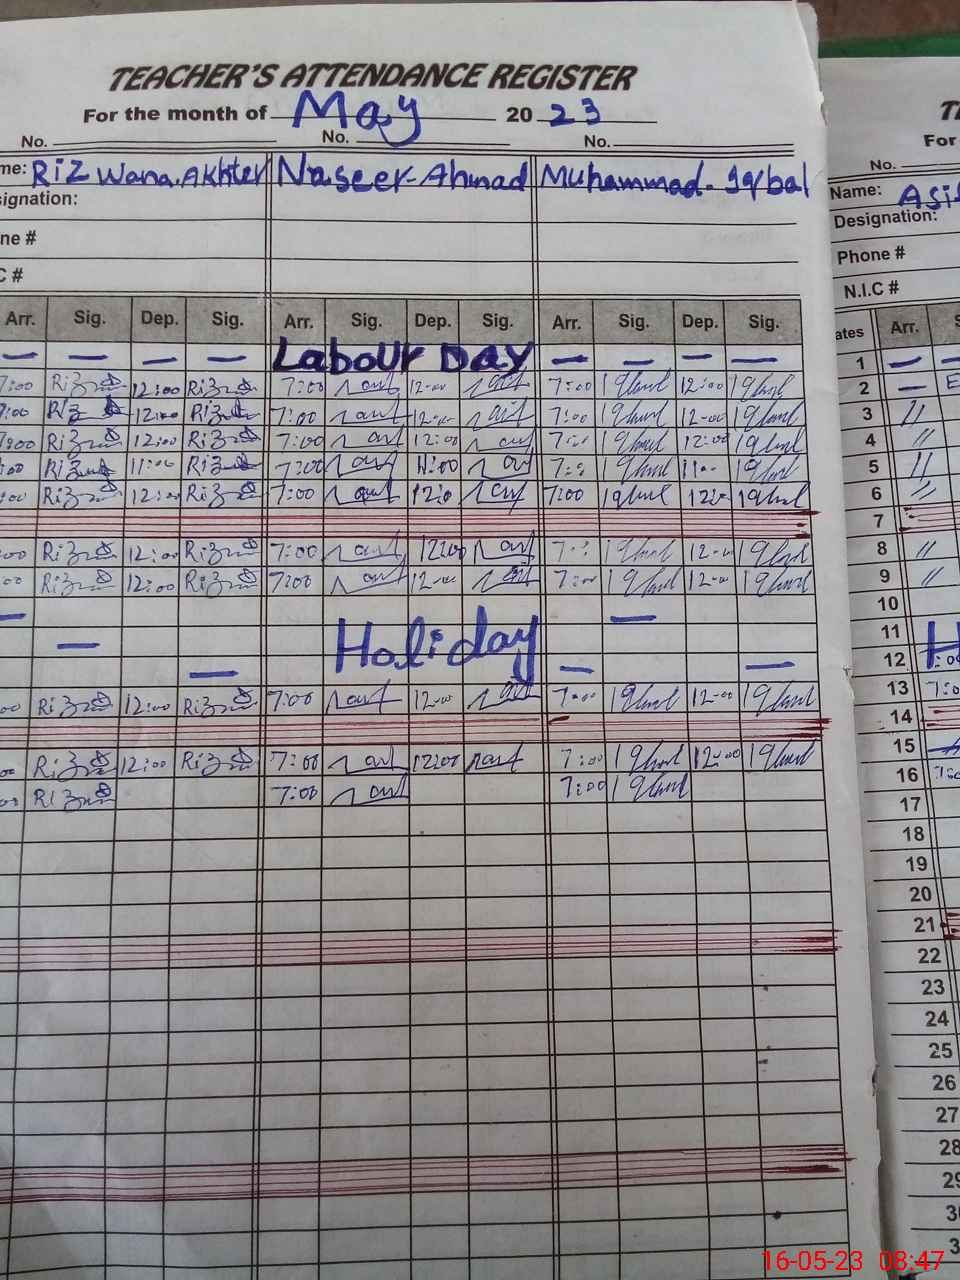 TEACHER'S ATTENDANCE REGISTER
For the month of May 2023
No. No. No.
me: Rizwana. Akhter Naseer-Ahmad Muhammad. Iqbal
signation:
ne #
C #
Arr. Sig. Dep. Sig. Arr. Sig. Dep. Sig. Arr. Sig. Dep. Sig.
— — — — Labour Day — — — —
7:00 12:00 7:00 12:00 7:00 Iqbal 12:00 Iqbal
7:00 12:00 7:00 12:00 7:00 Iqbal 12:00 Iqbal
7:00 12:00 7:00 12:00 7:00 Iqbal 12:00 Iqbal
:00 11:00 7:00 11:00 7:00 Iqbal 11:00 Iqbal
:00 12:00 7:00 12:0 7:00 Iqbal 12:00 Iqbal
:00 12:00 7:00 12:00 7:00 Iqbal 12:00 Iqbal
:00 12:00 7:00 12:00 7:00 Iqbal 12:00 Iqbal
— — — Holiday — — —
00 12:00 7:00 12:00 7:00 Iqbal 12:00 Iqbal
00 12:00 7:00 12:00 7:00 Iqbal 12:00 Iqbal
00 7:00 7:00 Iqbal
T
For
No.
Name: Asi
Designation:
Phone #
N.I.C #
ates Arr. S
1 —
2 — E
3 //
4 //
5 //
6 //
7
8 //
9 //
10
11 H
12 7:00
13 7:0
14
15
16 7:0
17
18
19
20
21
22
23
24
25
26
27
28
29
30
3
16-05-23 08:47